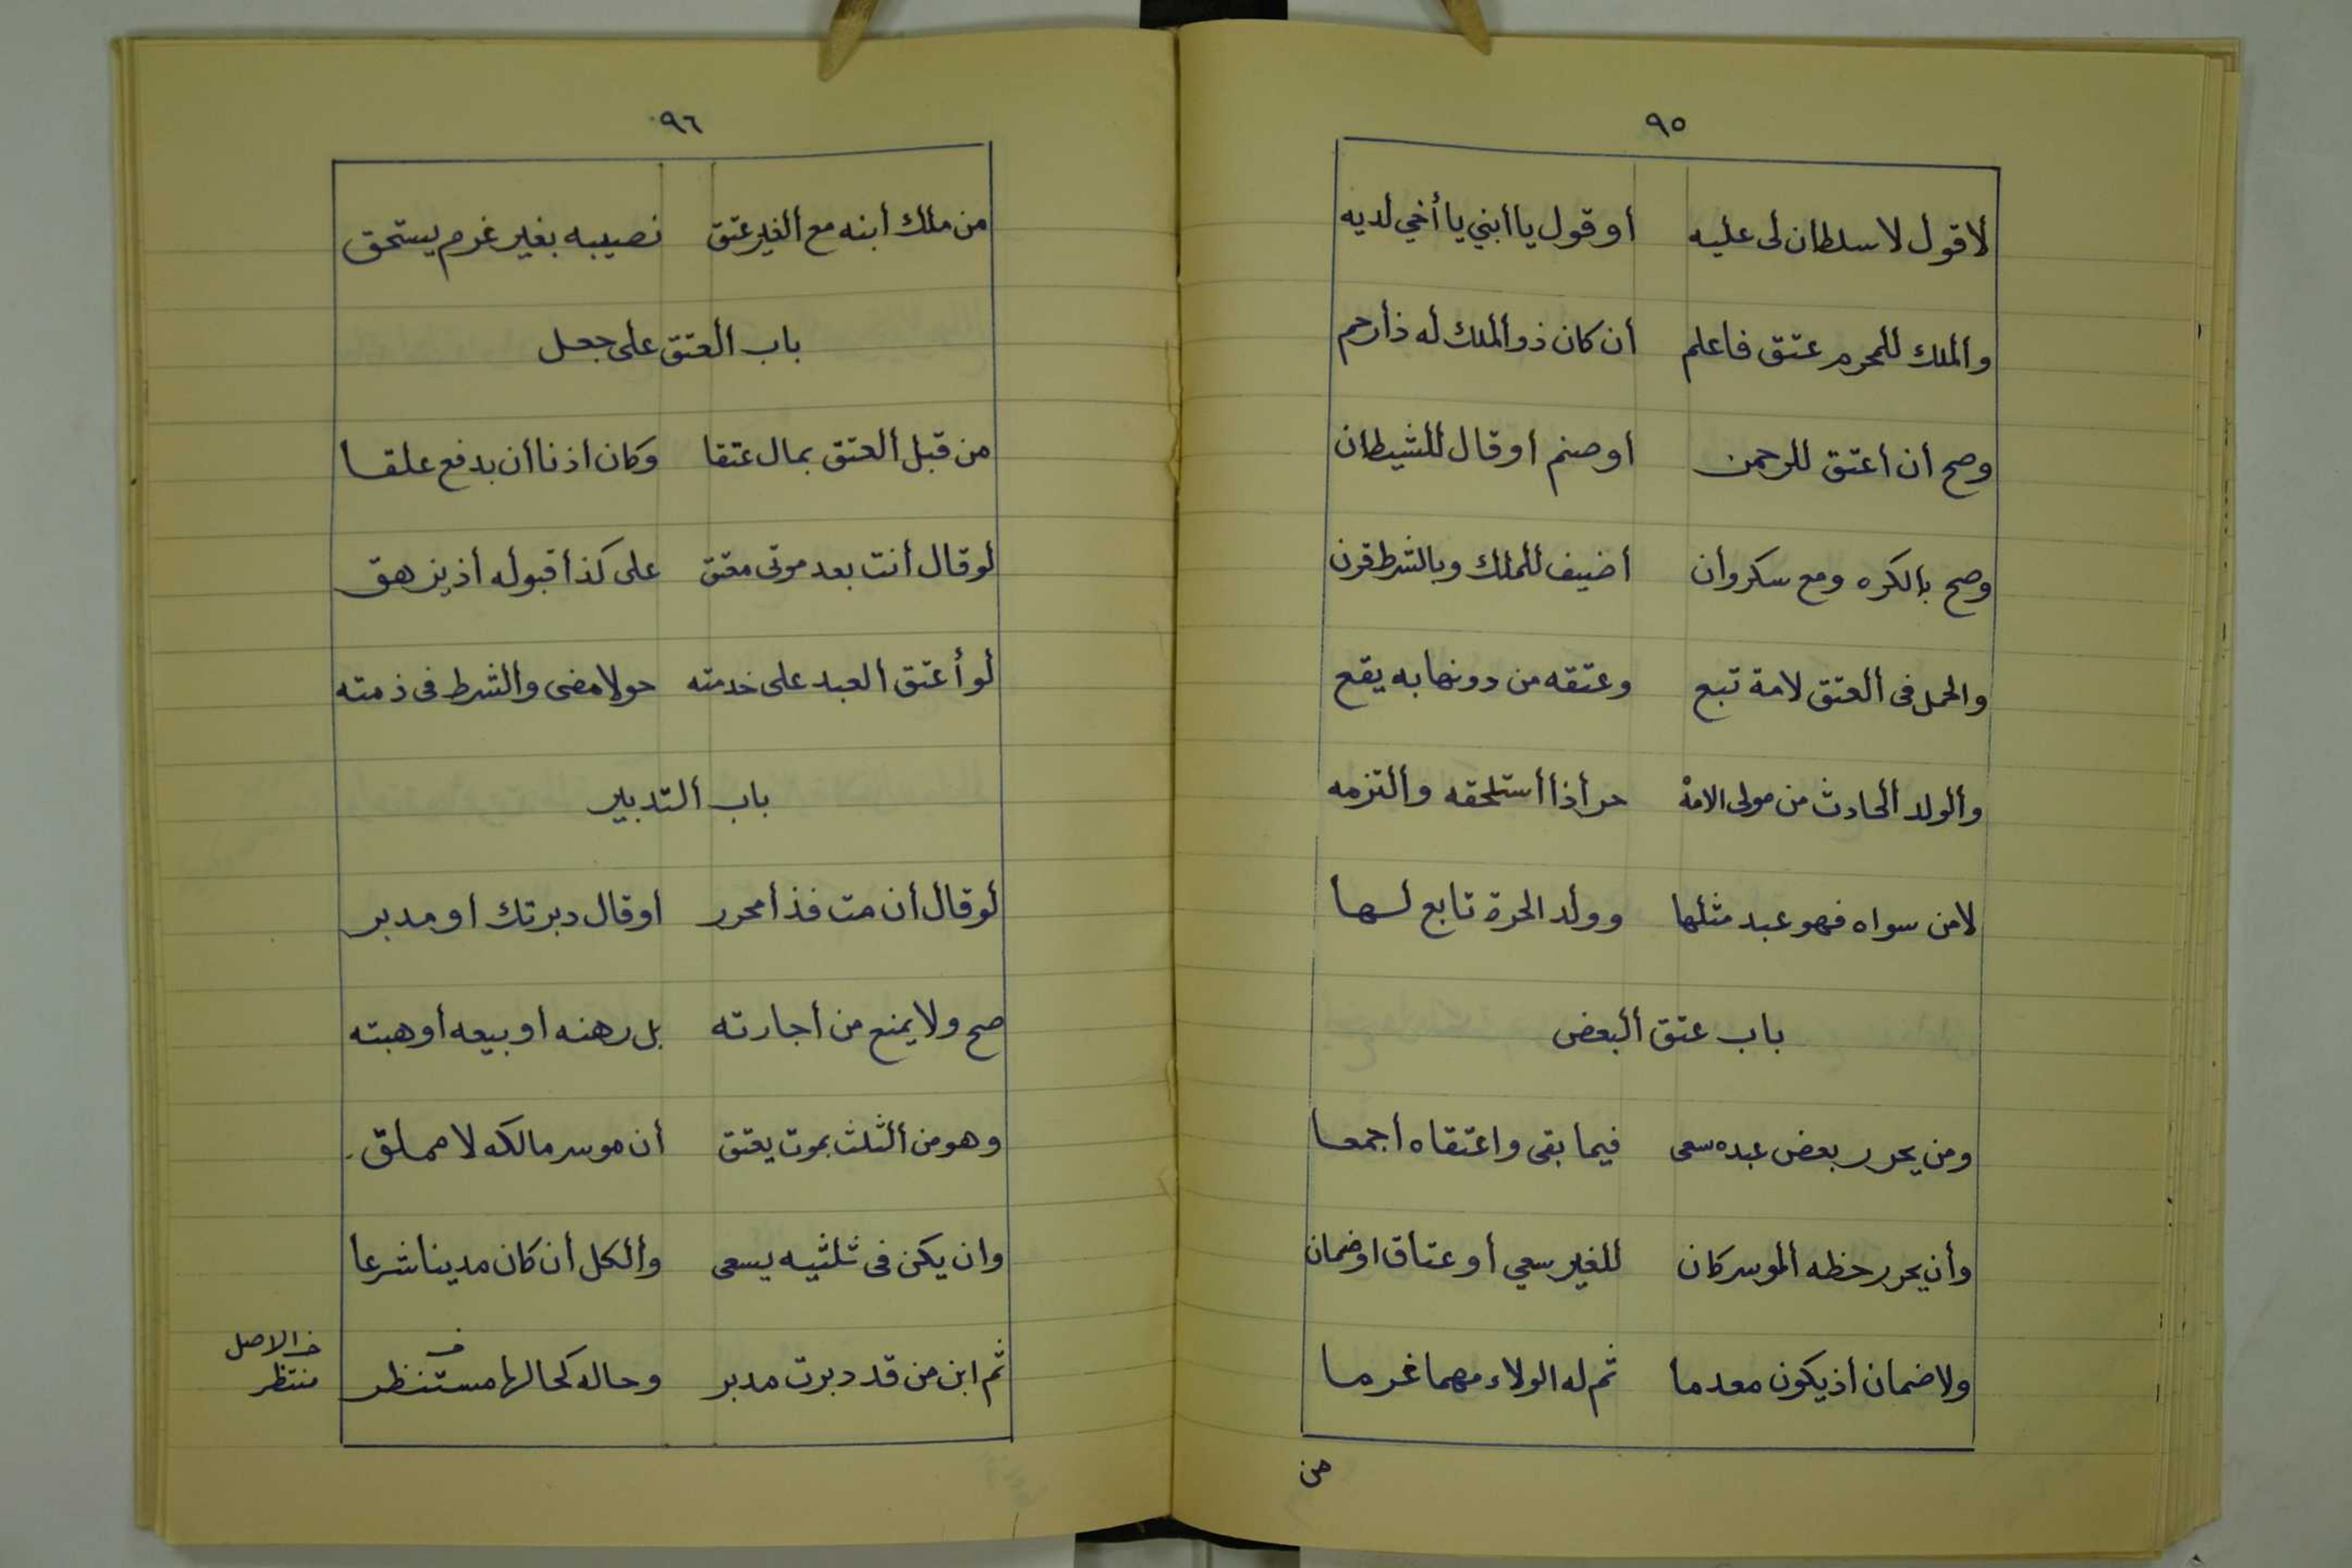 ٩٥
لا قول لا سلطان لى عليه أو قول يا أبني يا أخي لديه
وألملك للمحرم عتق فاعلم أن كان ذو ألملك له ذأ رحم
وصح أن اعتق للرحمن اوصنم اوقال للشيطان
وصح بالكره ومع سكر وأن أضيف للملك وبالشرط قرن
والحمل فى ألعتق لامة تبع وعتقه من دونها به يقع
وألولد ألحادث من مولى الامة حر أذا أستلحقه وألتزمه
لا من سواه فهو عبد مثلها وولد الحرة تابع لها
باب عتق ألبعض
ومن يحرر بعض عبده سعى فيما بقى واعتقاه اجمعا
وأن يحرر حظه ألموسر كان للغير سعي أو عتاق اوضمان
ولا ضمان أذ يكون معدما ثم له الولاء مهما غرما
من
٩٦
من ملك أبنه مع ألغير عتق نصيبه بغير غرم يستحق
باب ألعتق على جعل
من قبل ألعتق بمال عتقا وكان اذنا أن بدفع علقا
لو قال أنت بعد موتى معتق على كذأ قبوله أذ يزهق
لو أعتق العبد على خدمته حولا مضى وألشرط فى ذمته
باب ألتدبير
لو قال أن مت فذأ محرر اوقال دبرتك او مدبر
صح ولا يمنع من أجارته بل رهنه او بيعه أو هبته
وهو من ألثلث بموت يعتق أن موسر مالكه لا مملق
وان يكن فى ثلثيه يسعى وألكل أن كان مدينا شرعا
ثم ابن من قد دبرت مدبر وحاله كحالها مستنظر
الاصل
منتظر